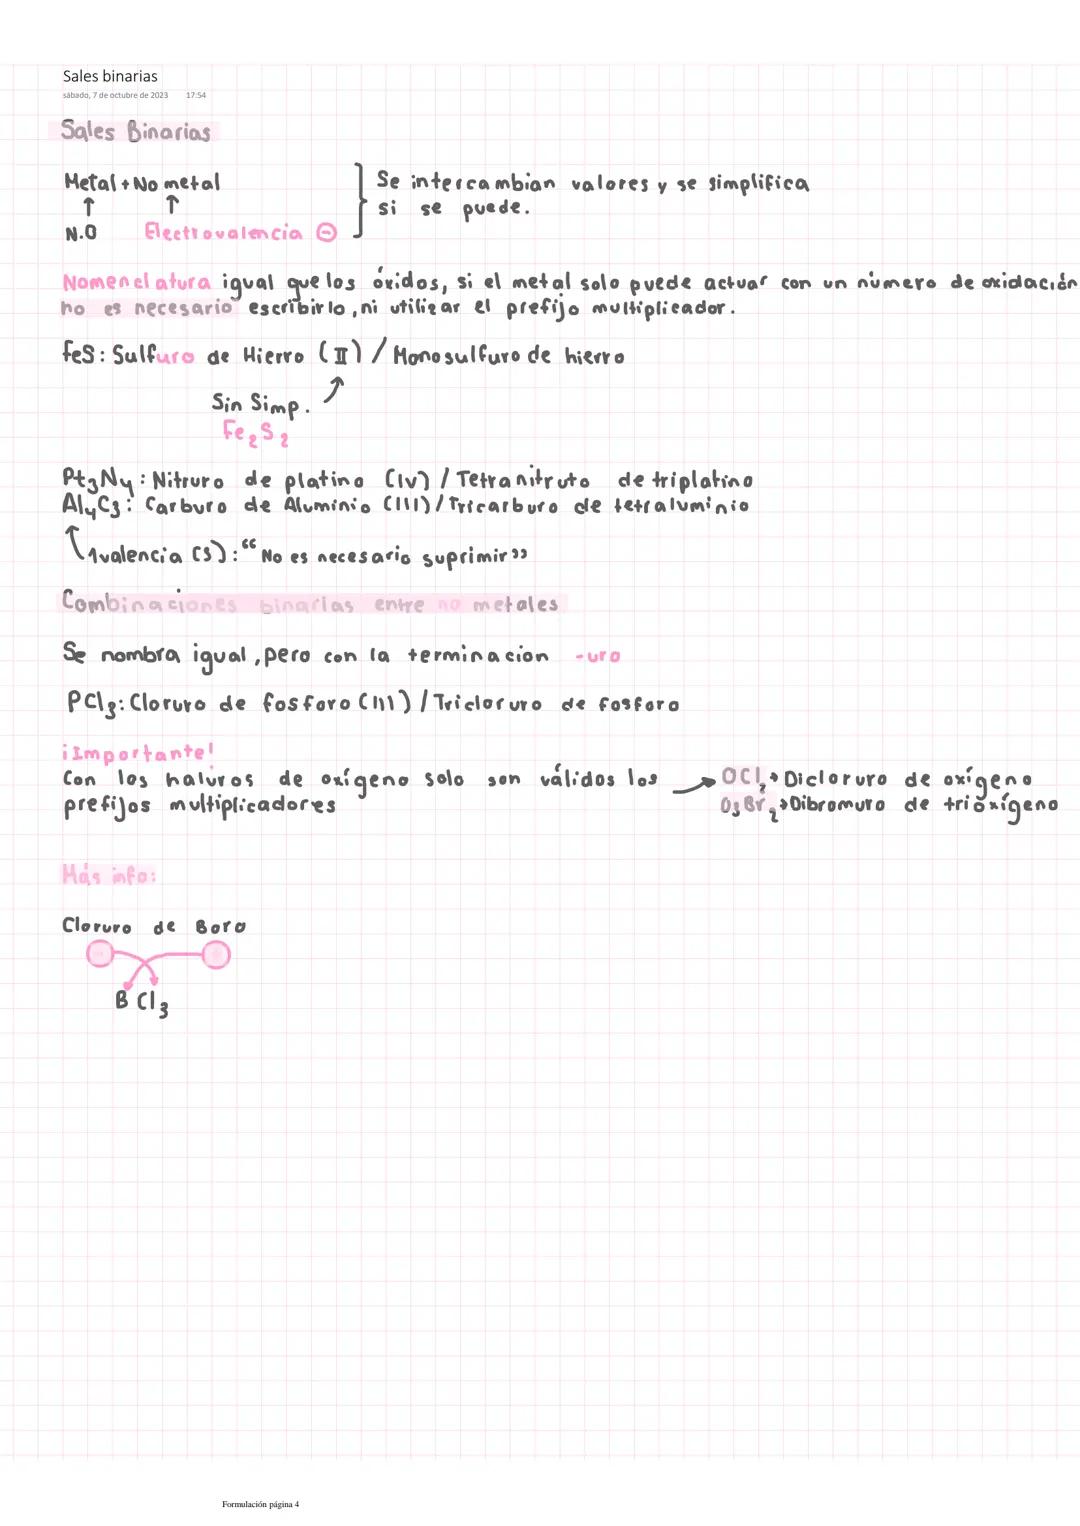 Sales binarias
sábado, 7 de octubre de 2023 17:54
Sales Binarias
Metal + No metal
N.O Electrovalencia ⊖
Se intercambian valores y se simplifica
si se puede.
Nomenclatura igual que los óxidos, si el metal solo puede actuar con un número de oxidación
no es necesario escribirlo, ni utilizar el prefijo multiplicador.
FeS: Sulfuro de Hierro (II) / Monosulfuro de hierro
Sin Simp.
Fe₂S₂
Pt₃N₄: Nitruro de platino (IV) / Tetranitruto de triplatino
Al₄C₃: Carburo de Aluminio (III) / Tricarburo de tetraluminio
1valencia (3): “No es necesario suprimir”
Combinaciones binarias entre no metales
Se nombra igual, pero con la terminacion -uro
PCl₃: Cloruro de fosforo (III) / Tricloruro de fosforo
¡Importante!
Con los haluros de oxígeno solo son válidos los → OCl₂ → Dicloruro de oxígeno
prefijos multiplicadores O₃Br₂ → Dibromuro de trioxígeno
Más info:
Cloruro de Boro
B Cl₃
Formulación página 4